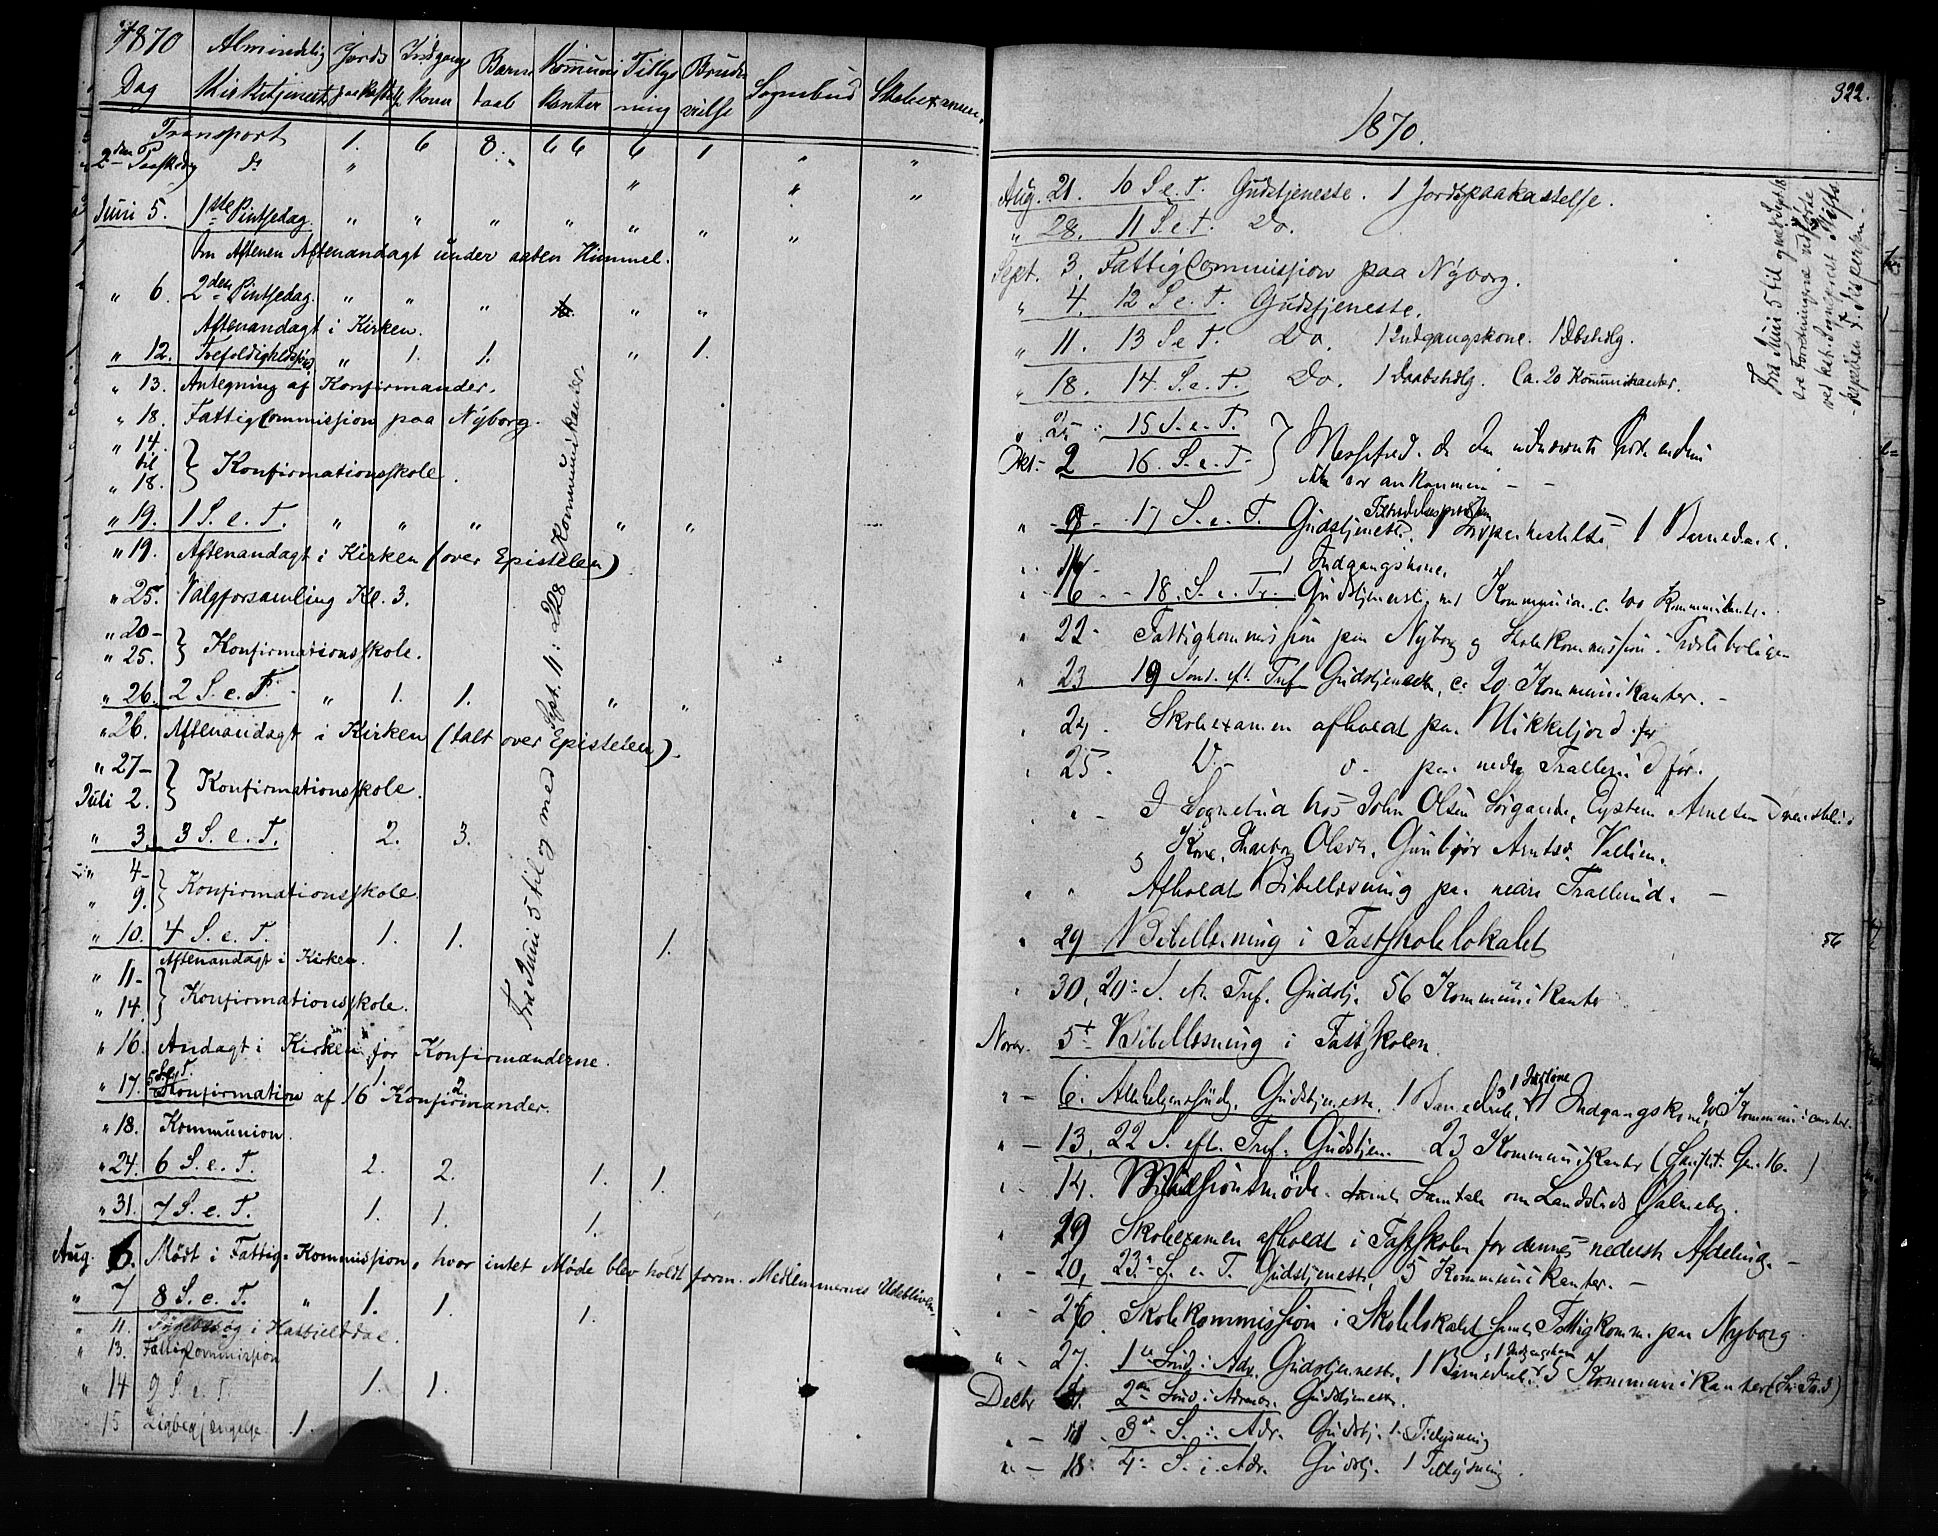 1870
Dag Almindelig Kirketjeneste Jords paakastelse Indgangs koner Barne daab Kommuni kanter Tillys ning Brude vielse Sognebud Skoleexamen.
Transport 1. 6 8. 66 6 1 " "
2den Paaskedag do " " " "
Juni 5. 1ste Pintsedag. " " " " " " "
Om Aftenen Aftenandagt under aaben Himmel.
" 6. 2den Pintsedag. " " " " "
Aftenandagt i Kirken.
" 12. Trefoldighedsfest " 1. 1. " 1.
" 13. Antegning af Konfirmander.
" 18. FattigCommission paa Nyborg.
" 14. til " 18. } Konfirmationsskole.
" 19. 1 S. e. T. " " " " "
" 19. Aftenandagt i Kirken (over Epistelen)
" 25. Valgforsamling Kl. 3.
" 20- " 25. } Konfirmationsskole.
" 26. 2 S. e. T. " 1. 1. " "
" 26. Aftenandagt i Kirken (talt over Epistelen)
" 27- Juli 2. } Konfirmationsskole.
" 3. 3 S. e. T. 2. 3.
" 4- " 9. } Konfirmationsskole.
" 10. 4 S. e. T. 1. 1. 1.
Aftenandagt i Kirken.
" 11- " 14. } Konfirmationsskole.
" 16. Andagt i Kirken for Konfirmanderne.
5 S. e. T. 1. 2
" 17. Konfirmation af 16 Konfirmander.
" 18. Kommunion.
" 24. 6 S. e. T. 2. 2. 1. 1.
" 31. 7 S. e. T. 1. 1. 1.
Aug. 6. Mødt i Fattig-Kommission, hvor intet Møde blev holdt form. Medlemmernes Udebliven.
" 7 8 S. e. T. " 1. 1. 1.
" 11. Sygebesøg i Hatfieltdal.
" 13. Fattigcommission
" 14 9 S. e. T. 1. 1.
" 15 Ligbegjængelse. 1.
Fra Juni 5 til og med Sept. 11: 228 Kommunikanter.
322.
1870.
Aug. 21. 10 S. e. T. Gudstjeneste. 1 Jordspaakastelse.
" 28. 11 S. e. T. Do.
Sept. 3. FattigCommission paa Nyborg.
" 4. 12 S. e. T. Gudstjeneste.
" 11. 13 S. e. T. Do. 1 Indgangskone. 1 Dbshdlg.
18. 14. S. e. T. Do. 1 Daabshdlg. Ca. 20 Kommunikanter.
" 25 15 S. e. T.
Okt. 2 16. S. e. T. } Messefald. da den
Fra Juni 5 til
ere Forretningerne udførte
ved kst. Sognepræst
kapellan J. Aspersen.
" 9 - 17 S. e. T. Gudstjeneste. 1 1 Barnedaab.
1 Indgangskone.
" 16 - 18. S. e. Tr. Gudstjeneste med Kommunion. c. Kommunikanter.
" 22 - Fattigkommission paa Nyborg og Skolekommission i
" 23 19 Sønd. eft. Tref. Gudstjeneste, c. 20 Kommunikanter. -
" 24. Skoleexamen afholdt paa Mikkeljord.
" 25 - D. o - paa nedre Trallerud
" - I Sognebud hos John Olsen Eystein Arnesen
Kone, Olsdr, Gunbjør Arntsd. Vallien.
" " Afholdt Bibellæsning paa nedre Trallerud. -
" 29 Bibellæsning i Fastskolelokalet 56
" 30, 20: S. e. Tref. Gudstj. 56 Kommunikanter
Novbr. 5te Bibellæsning i Fastskolen.
" - 6. Allehelgenssønd. Gudstjeneste. 1 Barnedaab, 1 Indgangskone, Kommunicanter.
" - 13, 22 S. eft. Tref. Gudstjen. 23 Kommunikanter (Skrift. Gen. 16.)
" - 14. Missionsmøde. samt Samtale om Landstads Salmebog.
" 19 Skoleexamen afholdt i Fastskolen for dennes nederste Afdeling. -
" - 20, 23: S. e. T. Gudstjeneste, 5 Kommunikanter. -
" - 26 Skolekommission i Skolelokalet samt Fattigkomm. paa Nyborg
1 Indgangskone
" - 27. 1ste Sønd. i Adv. Gudstjeneste, 1 Barnedaab, 5 Kommunikanter
Decbr 4. 2den Sønd. i Advent. Gudstjeneste.
" - 11 3de S. i Adv. Gudstj. 1 Tillysning
" - 18: 4: S. i Adv. Gudstj. 1 Tillysning.